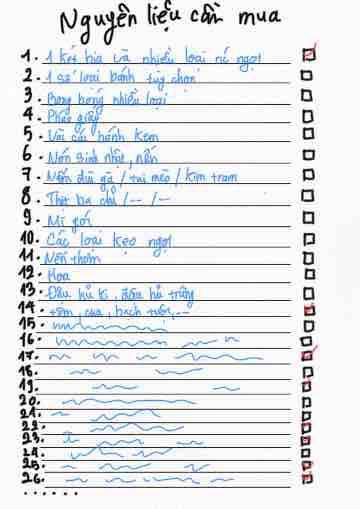 Nguyên liệu cần mua
1. 1 két bia và nhiều loại nc ngọt
2. 1 số loại bánh tùy chọn
3. Bong bóng nhiều loại
4. Pháo giấy
5. Vài cái bánh kem
6. Nón sinh nhật, nến
7. Nấm đùi gà / tai mèo / kim tram
8. Thịt ba chỉ / -- / --
9. Mì gói
10. Các loại kẹo ngọt
11. Nến thơm
12. Hoa
13. Đậu hủ ki, đậu hủ trứng
14. tôm, cua, bạch tuộc, --
15.
16.
17.
18.
19.
20.
21.
22.
23.
24.
25.
26.
......